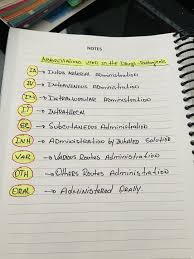 NOTES
Abbreviations used in the Drugs
IA → Intra Arterial Administration
IV → Intravenous Administration
IM → Intramuscular Administration
IT → Intrathecal
SC → Subcutaneous Administration
INH → Administration by Inhaled Solution
VAR → Various Routes Administration
OTH → Others Routes Administration
ORAL → Administered Orally.